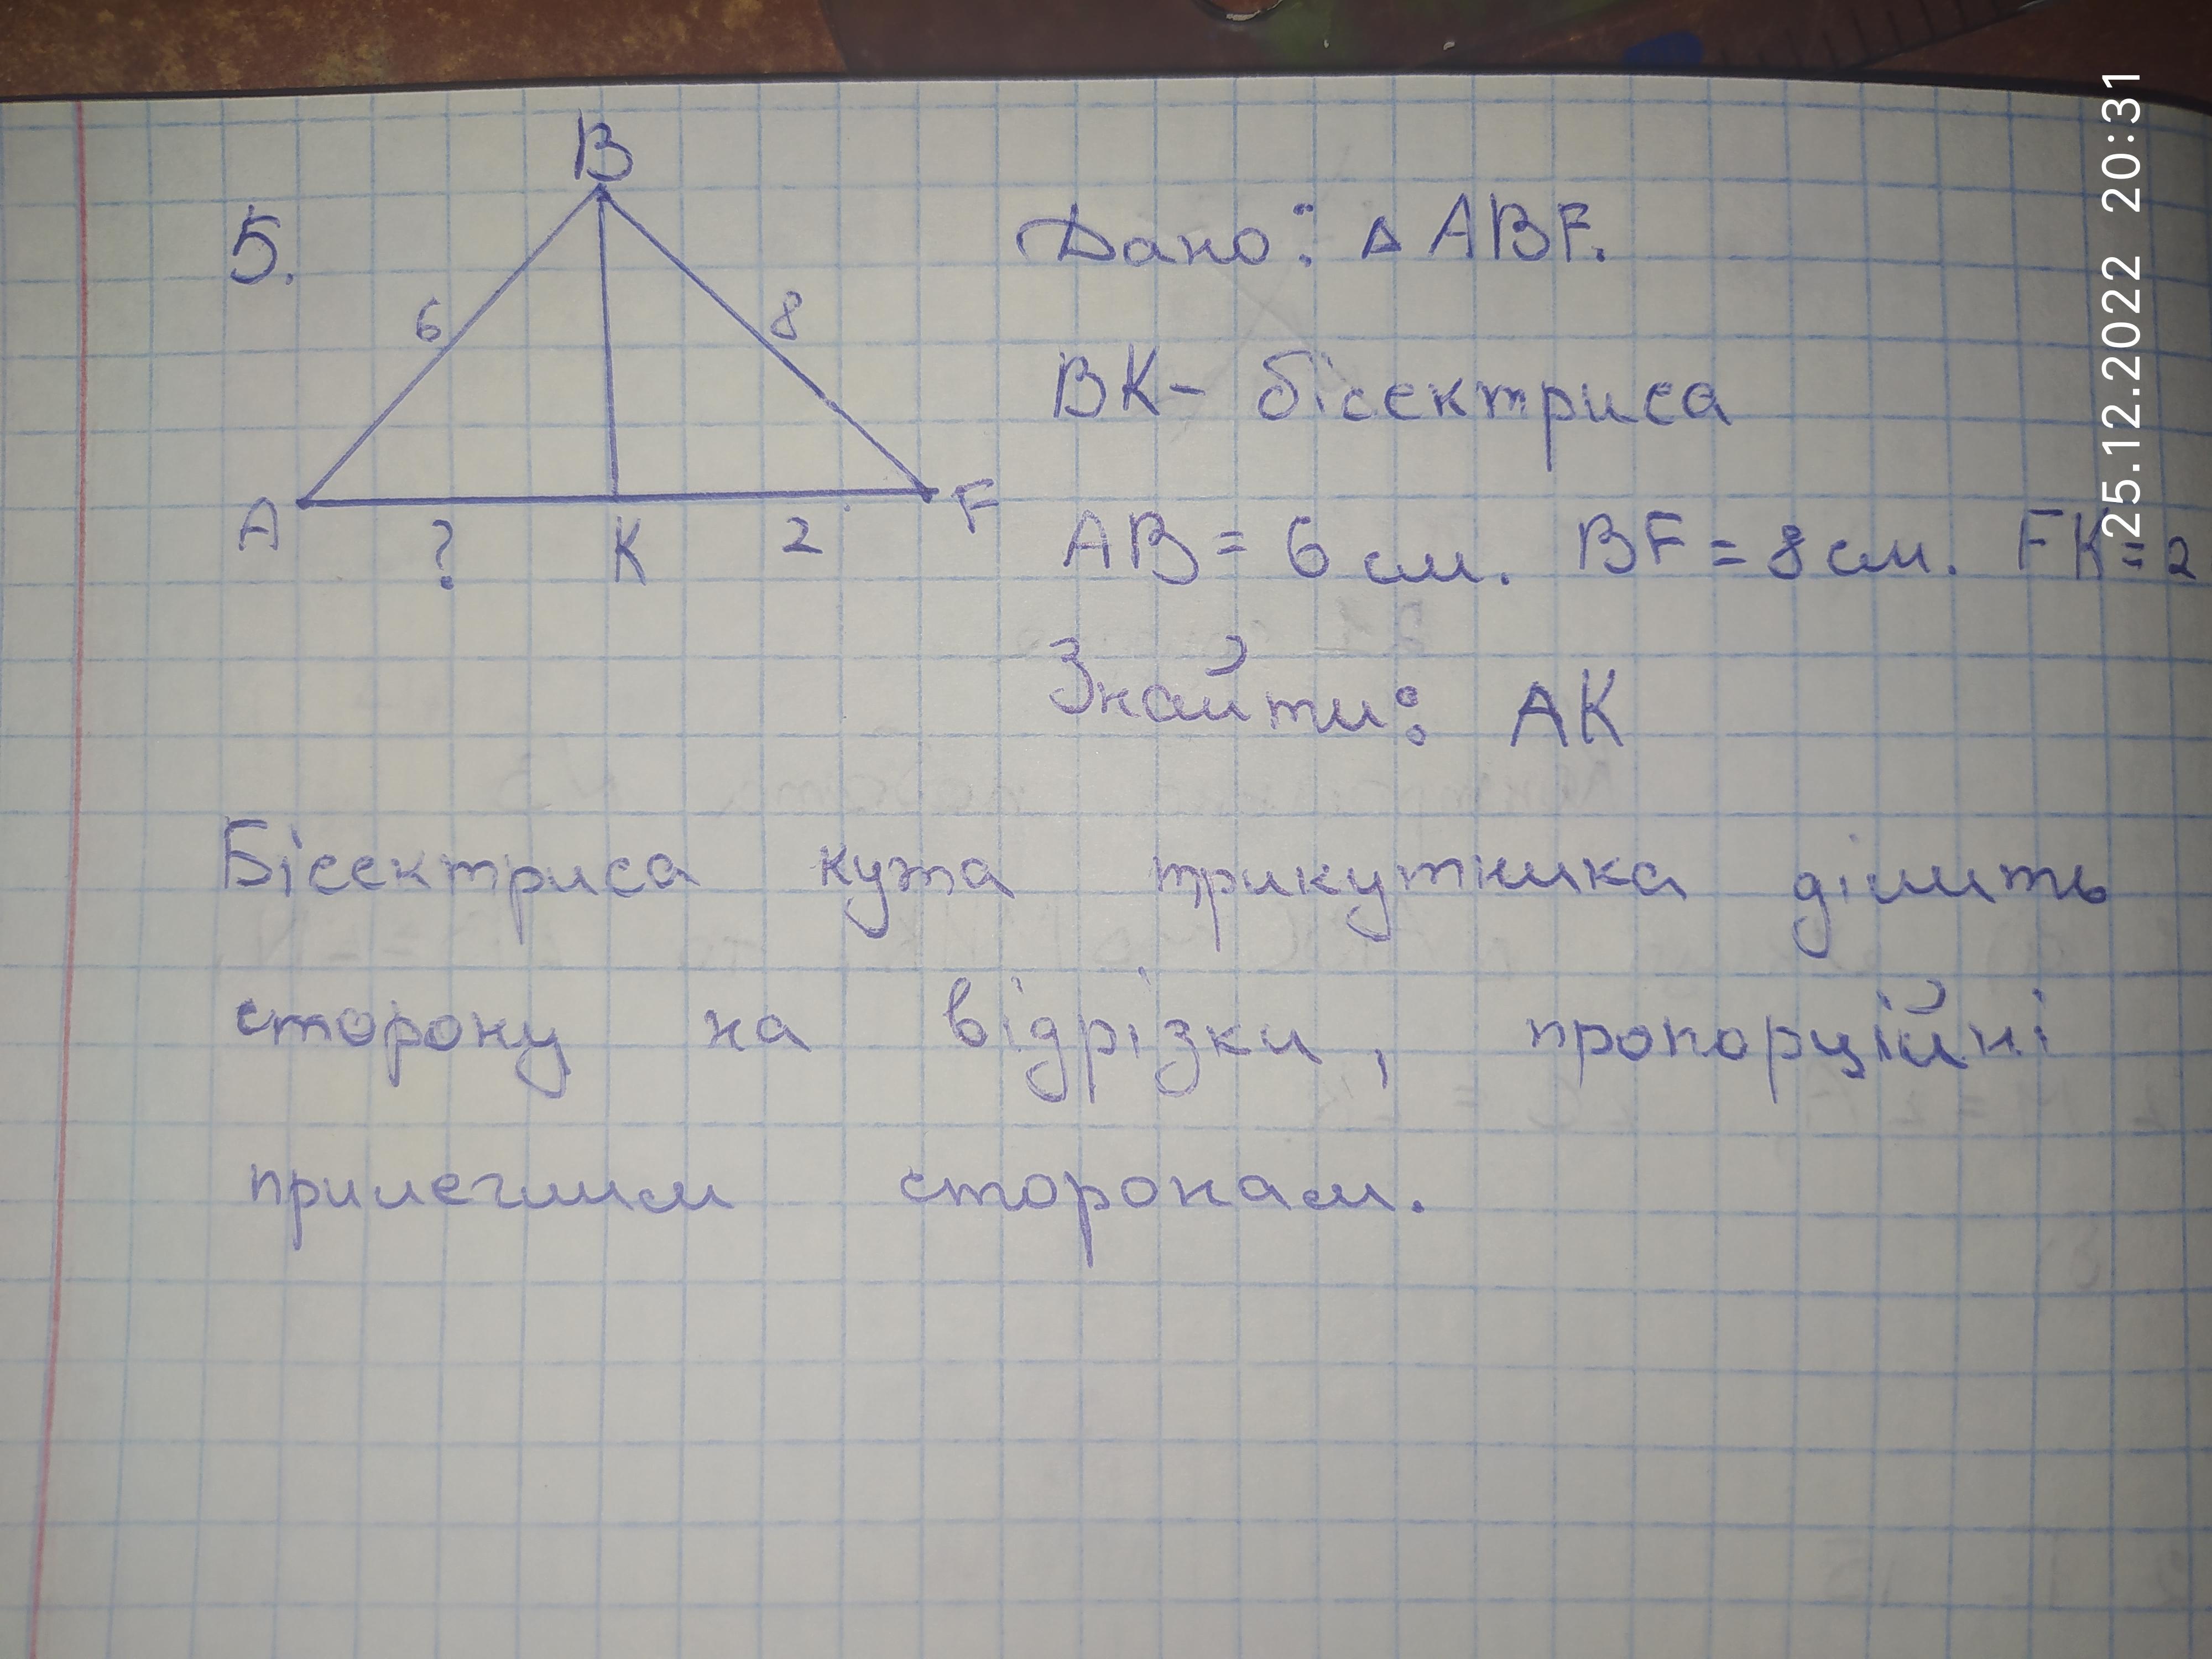 B
5.
6
8
A
?
K
2
F
Дано: △ ABF.
BK- бісектриса
AB = 6 см. BF = 8 см. FK = 2
Знайти: AK
Бісектриса кута трикутника ділить
сторону на відрізки, пропорційні
прилеглим сторонам.
25.12.2022 20:31